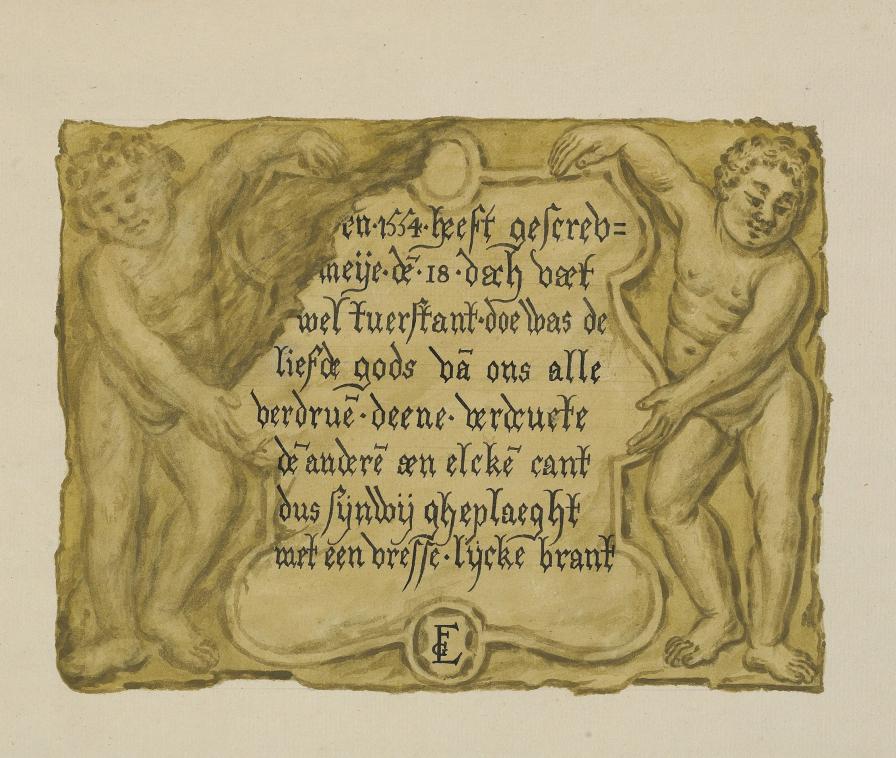 en·1554·heeft gescrev=
meije·dē·18·dach wæt
wel tuerstant·doe was de
liefde gods vā ons alle
verdruē·deene·verdruete
dē anderē æn elckē cant
dus sijn wij gheplaeght
met een vresse·lijcke brant